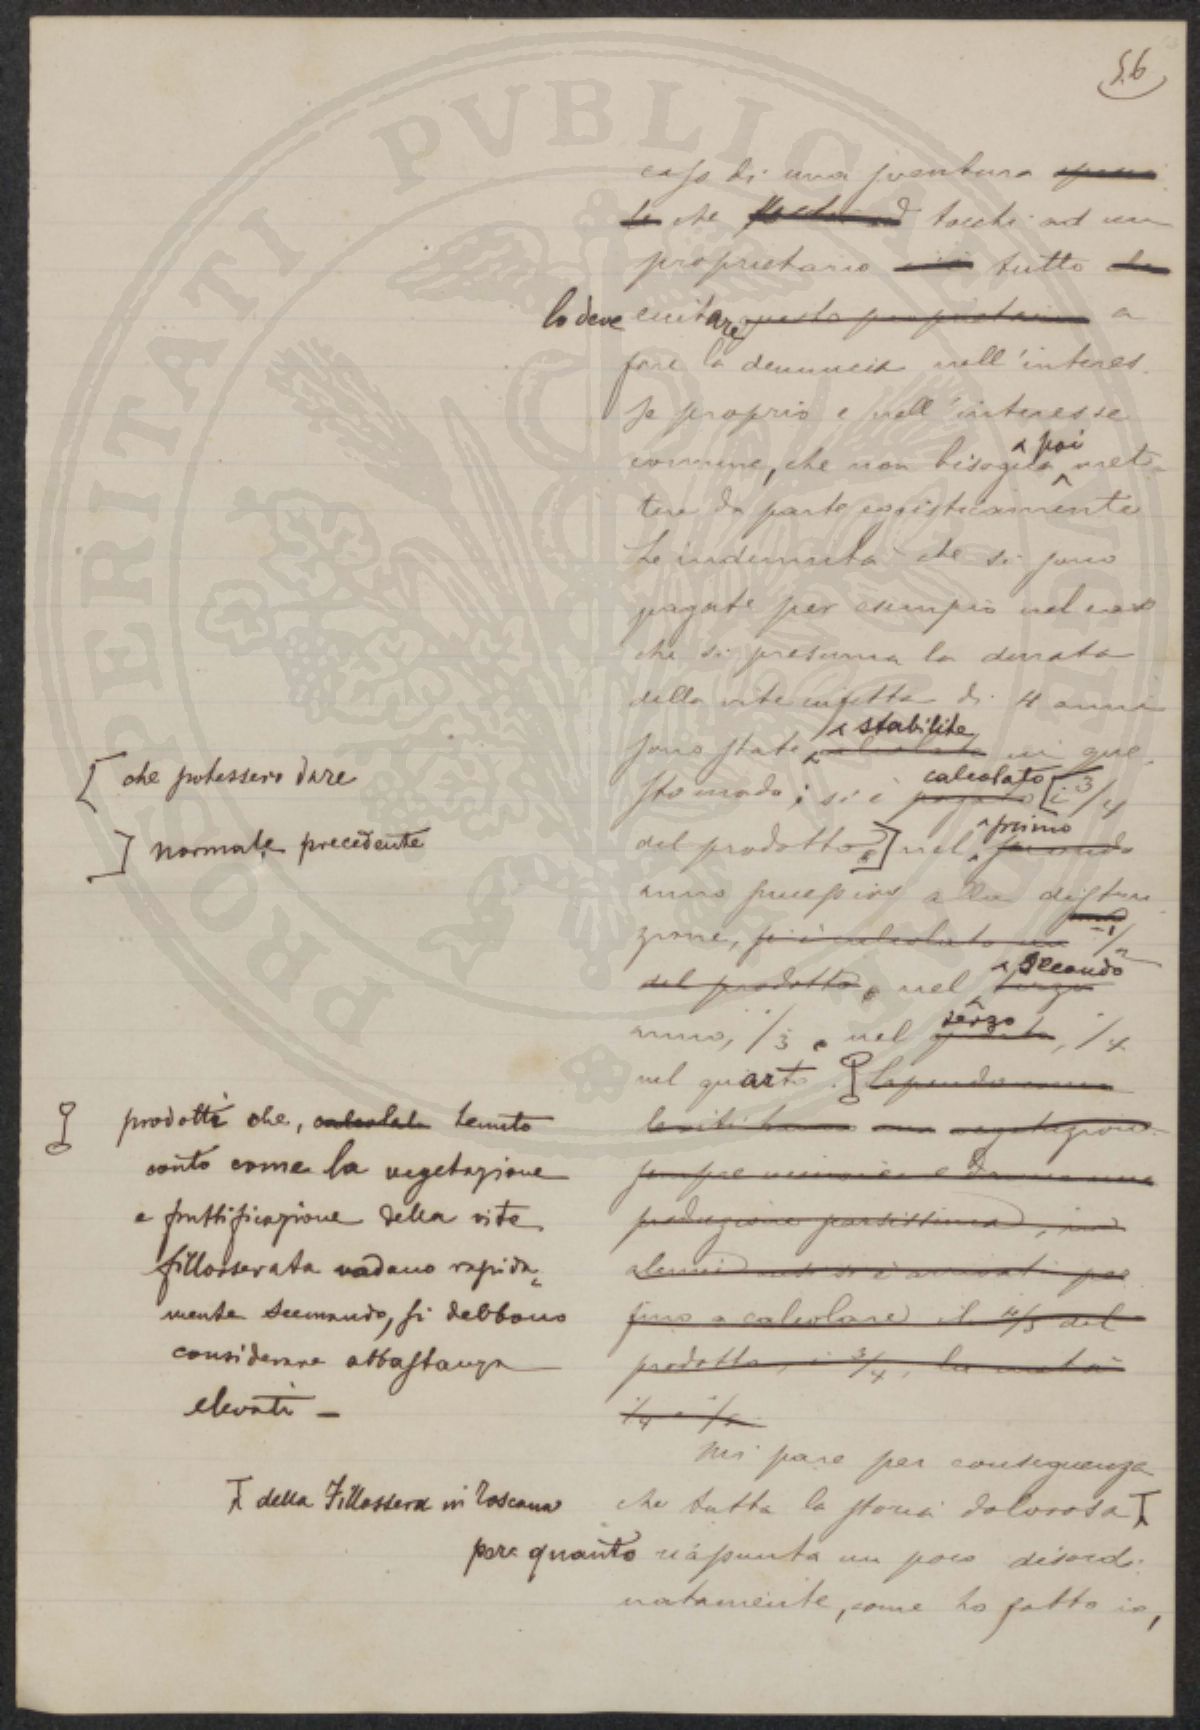 56
caso di una sventura
che tocchi ad un
proprietario tutto
lo deve eccitare questo proprietario a
fare la denuncia nell'interes-
se proprio e nell'interesse
comune, che non bisogna poi met-
tere da parte egoisticamente
Le indennità che si sono
pagate per esempio nel caso
che si presuma la durata
della vite infetta di 4 anni
sono state stabilite in que-
sto modo; si è calcolato pagato i 3/4
[ che potessero dare
del prodotto ] nel primo secondo
] normale precedente
anno successivo alla distru-
zione, si è calcolato un 1/2
del prodotto, nel secondo terzo
anno, 1/3 e nel terzo, 1/4
nel quarto. sapendo come
le viti hanno una vegetazione
sempre minore e danno una
produzione scarsissima,
alcuni casi si è arrivati per
fino a calcolare i 4/5 del
prodotto, i 3/4, la metà
prodotti che, calcolato tenuto
conto come la vegetazione
e fruttificazione della vite
fillosserata vadano rapida=
mente scemando, si debbono
considerare abbastanza
elevati -
Mi pare per conseguenza
che tutta la storia dolorosa
della Fillossera in Toscana
per quanto riassunta un poco disordi-
natamente, come ho fatto io,
PROSPERITATI PVBLICAE